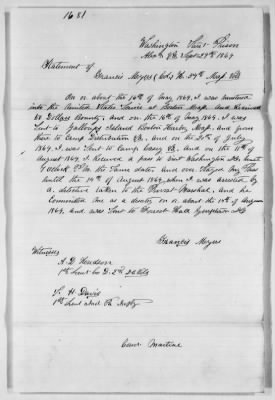 1681
Washington Street Prison
Alex. Va. Sept 29th 1864
Statement of
Francis Meyers Co. H. 24th Mass Vols
On or about the 14th of May 1864, I was mustered
into the United States Service at Boston Mass. and Received
Dollars Bounty, and on the 16th of May 1864, I was
Sent to Galloups Island Boston Harbor, Mass, and from
there to Camp Distribution Va. and on the 2nd of July
1864, I was Sent to Camp Casey Va. and on the 11th of
August 1864, I received a pass to visit Washington D.C. until
6 oclock P.M. the Same date, and over Stayed My Pass
until the 14th of August 1864, when I was arrested by
a detective taken to the Provost Marshal, and he
Committed me as a deserter on or about the 14th of August
1864, and was Sent to Forrest Hall Georgetown D.C.
Francis Meyers
Witnesses
1st Lieut Co D. 2nd
H Davis
1st Lieut
Court Martial